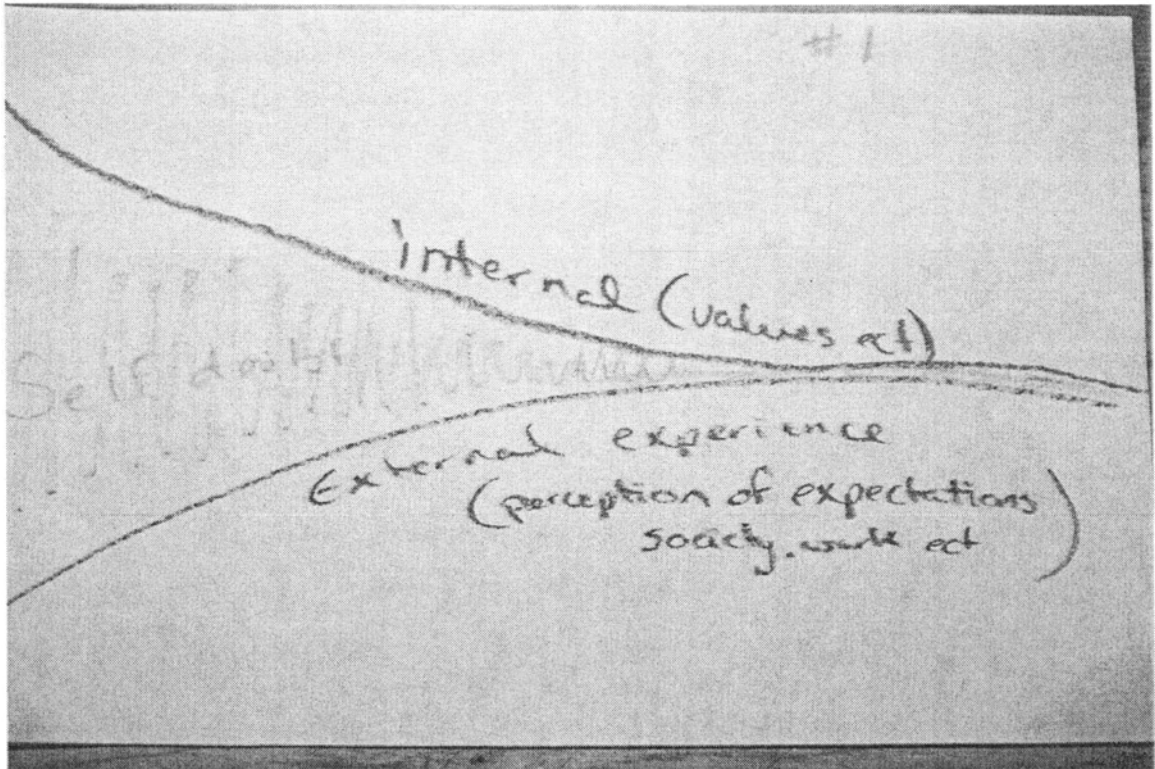 #1
internal (values ect)
Self doubt
External experience
(perception of expectations
society. work ect)